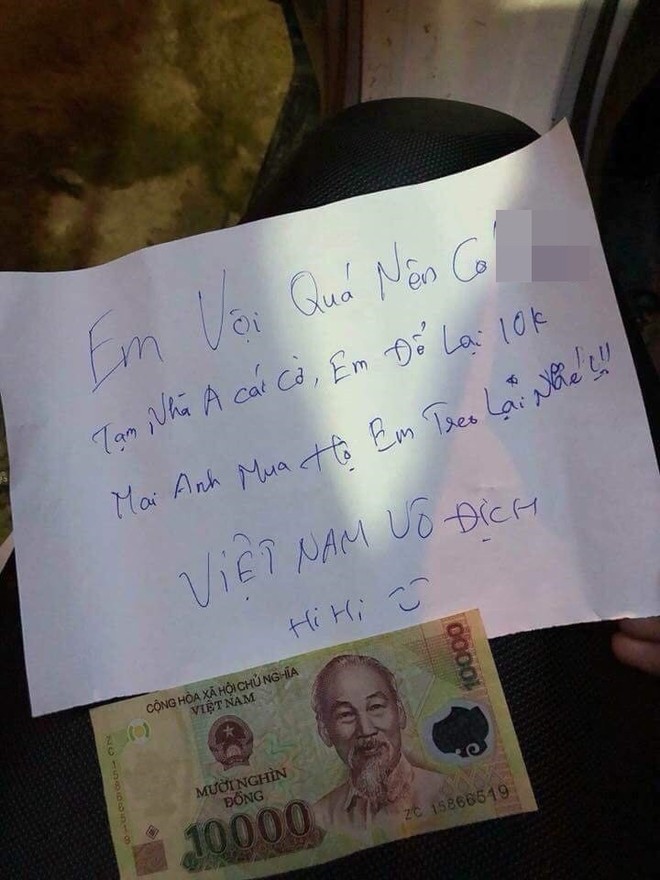 Em Vội Quá Nên Có
Tạm Nhà A cái Cờ, Em Để Lại 10K
Mai Anh Mua Hộ Em Treo Lại Nhé !!!
VIỆT NAM VÔ ĐỊCH
Hi Hi
CỘNG HÒA XÃ HỘI CHỦ NGHĨA
VIỆT NAM
10000
MƯỜI NGHÌN
ĐỒNG
10000
ZC 15866519
ZC 15866519